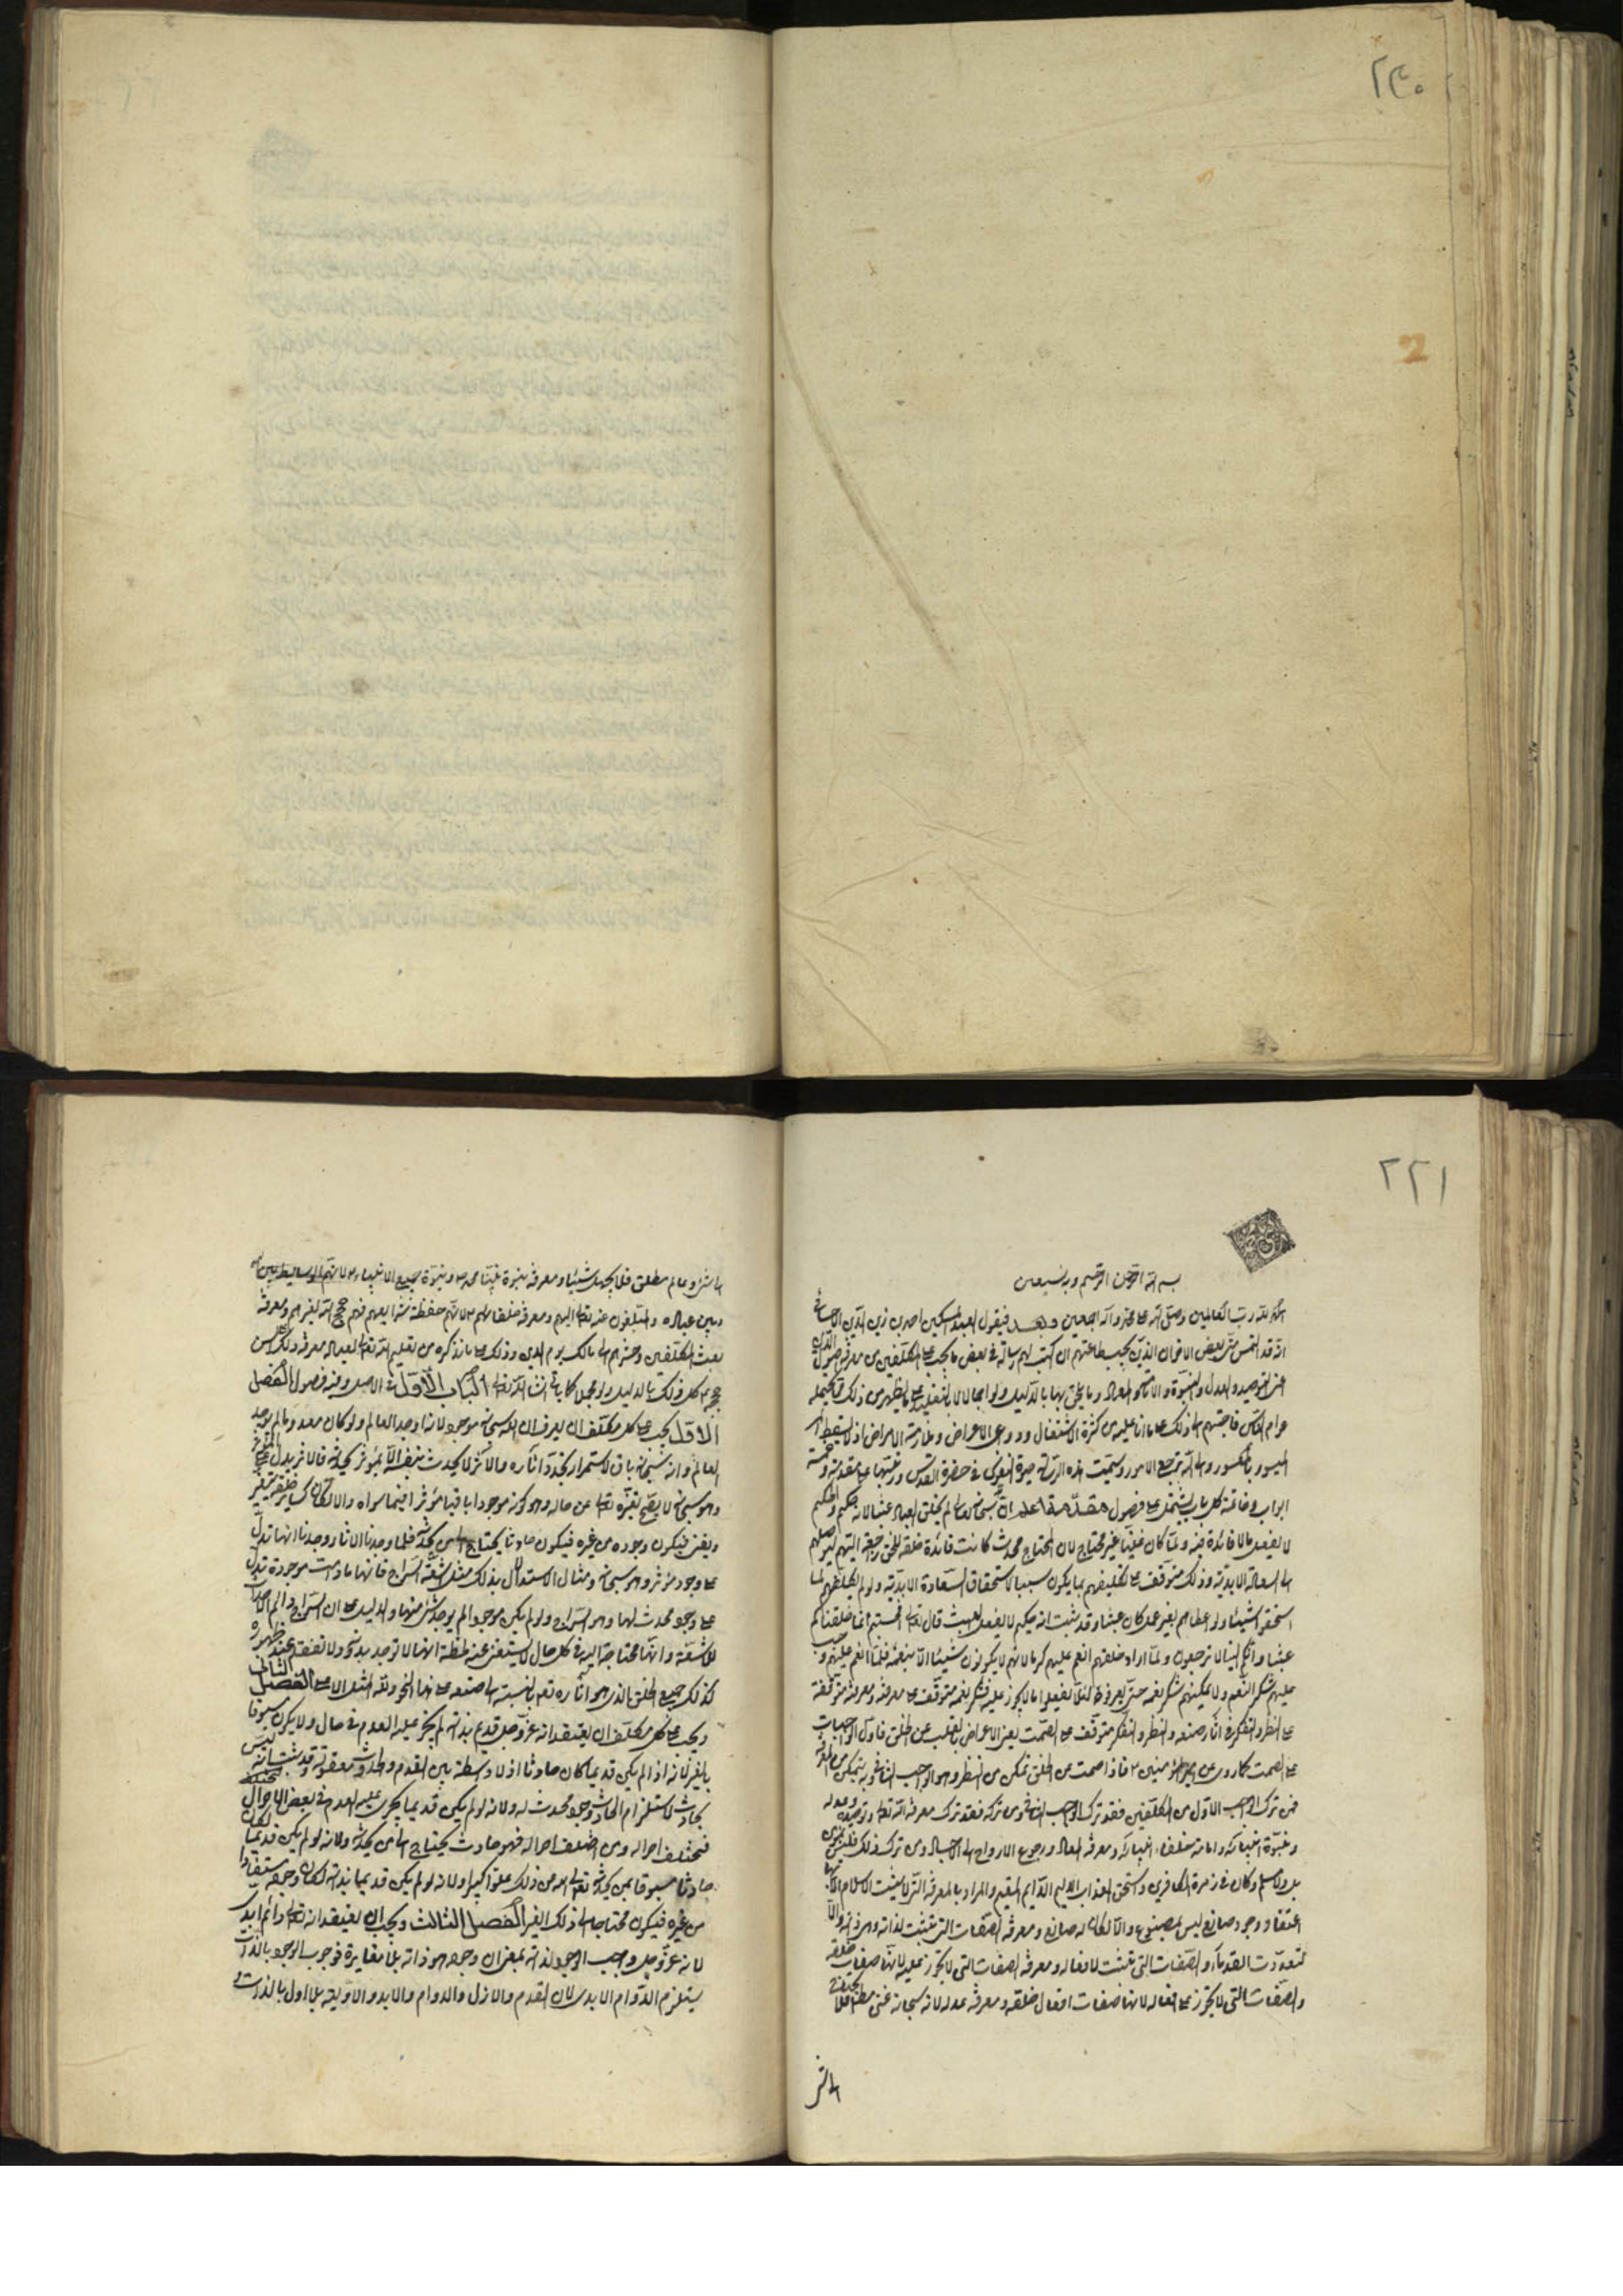 ٢٣٠
2
٢٢١
بسم الله الرحمن الرحيم وبه نستعين
الحمد لله رب العالمين وصلى الله على محمد وآله اجمعين وبعد فيقول العبد المسكين احمد بن زين الدين الاحسائى
انه قد التمس منى بعض الاخوان الذين تجب طاعتهم ان اكتب لهم رسالة فى بعض ما يجب على المكلفين من معرفة اصول الدين
اعنى التوحيد والعدل والنبوة والامامة والمعاد وما يلحق بها بالدليل ولو اجمالا لا بالتقليد على ما يظهر من ذلك فيما يحمله
عوام الناس فاجبتهم الى ذلك على ما انا عليه من كثرة الاشتغال ودواعى الاعراض وملازمة الامراض اذ لا يسقط
الميسور بالمعسور والى الله ترجع الامور وسميت هذه الرسالة حيوة النفوس فى حضرة القدس ورتبتها على مقدمة وخمسة
ابواب وخاتمة كل باب يشتمل على فصول مقدمة اعلم ان الله سبحانه لم يخلق العباد عبثا لانه حكيم والحكيم
لا يفعل ما لا فائدة فيه ولما كان غنيا غير محتاج لان المحتاج محدث كانت فائدة خلقه للخلق راجعة اليهم ليوصلهم
الى السعادة الابدية وذلك متوقف على تكليفهم بما يكون سببا لاستحقاق السعادة الابدية ولو لم يكلفهم لما
استحقوا شيئا ولو اعطاهم بغير عمل كان عبثا وقد ثبت انه حكيم لا يفعل العبث قال تعالى افحسبتم انما خلقناكم
عبثا وانكم الينا لا ترجعون ولما اراد خلقهم انعم عليهم كرما لانهم لا يكونون شيئا الا بنعمه فلما انعم عليهم وجب
عليهم شكر النعم ولا يمكنهم شكر نعمه حتى يعرفوه لئلا يفعلوا ما لا يجوز عليه فشكر نعمه متوقف على معرفته ومعرفته متوقفة
على النظر والتفكر فى آثار صنعه والنظر والتفكر متوقف على الصمت يعنى الاعراض بالقلب عن الخلق فاول الواجبات
على الصمت كما روى عن امير المؤمنين ع فاذا صمت عن الخلق تمكن من النظر وهو الواجب الثانى وبه يتمكن من المعرفة
فمن ترك الواجب الاول من المكلفين فقد ترك الواجب الثانى ومن تركه فقد ترك معرفة الله تعالى وتوحيده وعدله
ونبوة انبيائه وامامة خلفاء انبيائه ومعرفة المعاد ورجوع الارواح الى الاجساد ومن ترك ذلك فليس بمؤمن
بل ولا مسلم وكان فى زمرة الكافرين واستحق العذاب الاليم الدائم المقيم والمراد بالمعرفة التى لا يثبت الاسلام الا بها
اعتقاد وجود صانع ليس بمصنوع والا لكان له صانع ومعرفة الصفات التى تثبت لذاته وهى ذاته والا
لتعددت القدماء والصفات التى تثبت لافعاله ومعرفة الصفات التى لا تجوز عليه لانها صفات خلقه
والصفات التى لا تجوز على افعاله لانها صفات افعال خلقه ومعرفة عدله لانه سبحانه غنى مطلق فلا يحتاج
الى شئ
الى شئ وعالم مطلق فلا يجهل شيئا ومعرفة نبوة نبينا محمد ص ونبوة جميع الانبياء ع لانهم الوسايط بين الله
وبين عباده والمبلغون عنه تعالى اليهم ومعرفة خلفائهم ع لانهم حفظة شرايعهم فهم حجج الله بعدهم ومعرفة
بعث المكلفين وحشرهم الى مالك يوم الدين وذلك على ما نذكره من تعليم الله تعالى لعباده معرفة ذلك على السن
حججه كل ذلك بالدليل ولو مجملا كما ياتى انشاء الله تعالى الباب الاول فى التوحيد وفيه فصول الفصل
الاول يجب على كل مكلف ان يعرف ان الله سبحانه موجود لانه اوجد العالم ولو كان معدوما لم يوجد
العالم وانه سبحانه باق لاستمرار تجدد آثاره والاثر لا يحدث بنفسه الا بمؤثر يحدثه فالاثر يدل على المؤثر
وهو سبحانه لا يصح تغيره تعالى عن حاله وهو كونه موجودا باقيا مؤثرا فيما سواه والا لكان كساير خلقه يتغير
ويفنى فيكون وجوده من غيره فيكون حادثا يحتاج الى من يحدثه فلما وجدنا الاثار وجدنا انها تدل
على وجود مؤثر وهو سبحانه ومثال الاستدلال بذلك مثل اشعة السراج فانها ما دامت موجودة تدل
على وجود محدث لها وهو السراج ولو لم يكن موجودا لم يوجد شئ منها والدليل على ان السراج دائم الاحداث
للاشعة وانها محتاجة اليه فى كل حال لا يستغنى عنه لحظة انها لا توجد بدونه ولا تفقد عند ظهوره
كذلك جميع الخلق بالذى هو آثاره تعالى بالنسبة الى صنعه على نهذا النحو ولله المثل الاعلى الفصل الثانى
ويجب على كل مكلف ان يعتقد انه عز وجل قديم بذاته لم يجر عليه العدم فى حال ولا يكون مسبوقا
بالغير لانه اذا لم يكن قديما كان حادثا اذ لا واسطة بين القدم والحدوث معقولة وقد ثبت انه ليس
بحادث لاستلزام الحادث وجود محدث له ولانه لو لم يكن قديما يجرى عليه العدم فى بعض الاحوال
فتختلف احواله ومن اختلفت احواله فهو حادث يحتاج الى من يحدثه ولانه لو لم يكن قديما لكان
حادثا مسبوقا بمن يحدثه تعالى الله من ذلك علوا كبيرا ولانه لو لم يكن قديما بذاته لكان وجوده مستفادا
من غيره فيكون محتاجا الى ذلك الغير الفصل الثالث ويجب ان يعتقد انه تعالى دائم ابدى
لانه عز وجل واجب الوجود لذاته بمعنى ان وجوده هو ذاته بلا مغايرة فوجوب الوجود بالذات
يستلزم الدوام الابدى لان القدم والازل والدوام والابد والاولية بلا اول بالذات و